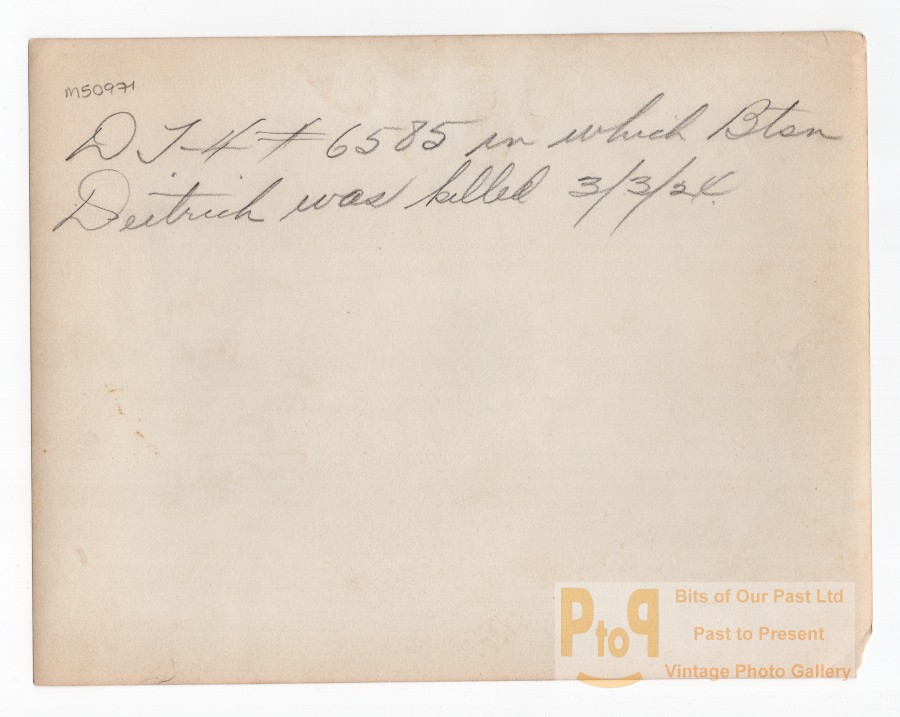 M50971
DT-4 # 6585 in which Btsn
Deitrich was killed 3/3/24.
PtoP
Bits of Our Past Ltd
Past to Present
Vintage Photo Gallery